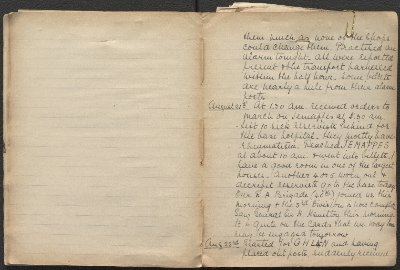 them much as none of the shops
could change them. Practised an
alarm tonight. All were reported
present & the transport harnessed
within the half hour. Some billets
are nearly a mile from their alarm
posts
August 21st. At 1.30 am received orders to
march on Jemappes at 8.30 am
Left 10 sick reservists behind for
the base hospital. They mostly have
rheumatism. Reached JEMAPPES
at about 10 am & went into billets. I
have a good room in one of the largest
houses. Another 4 or 5 worn out &
decrepit reservists go to the base today
Bde R A Brigade joined us this
morning & the 3rd Division is now complete
Saw General Sir H Hamilton this morning
It is quite on the cards that we may
may be engaged tomorrow
Aug 22nd Started for GHLIN and having
placed outposts suddenly received